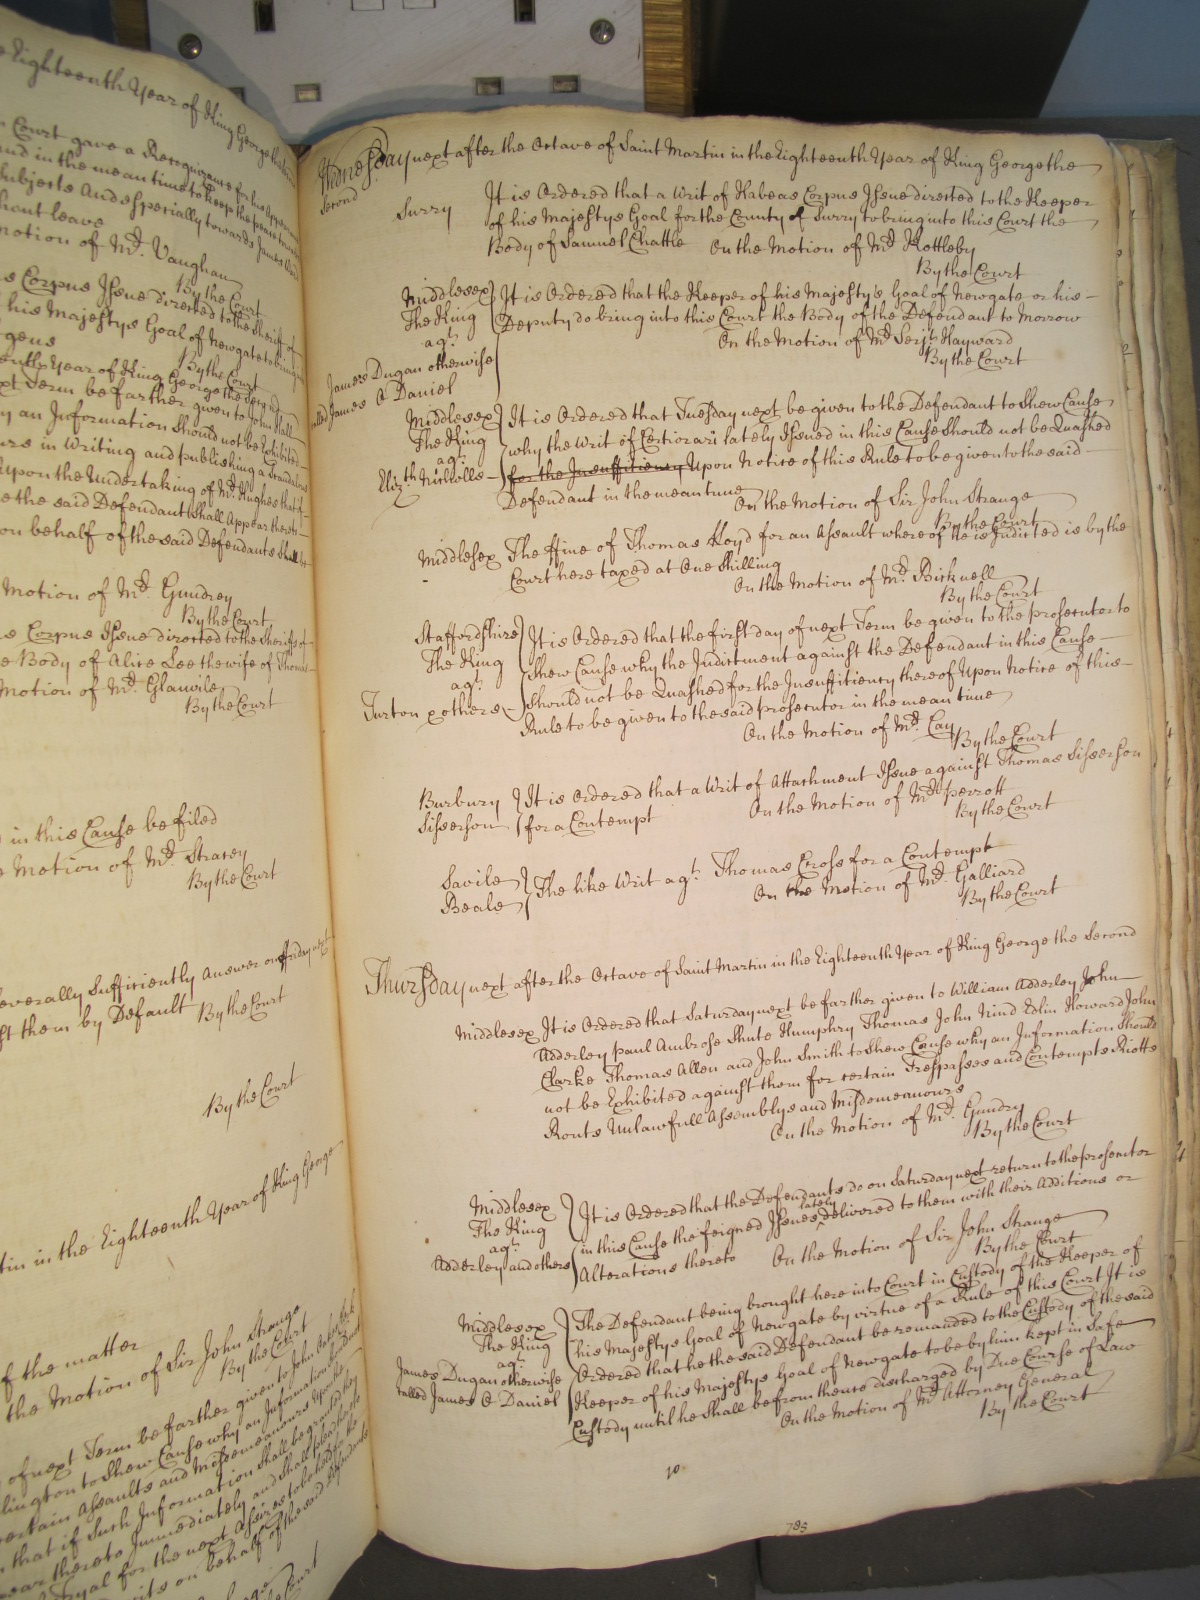 Eighteenth Year of King George the
Court gave a Recognizance for his Appear
and in the mean time to keep the peace
Subjects And Especially towards James
thout leave
motion of Mr. Vaughan
By the Court
s Corpus Issue directed to the Sheriff of
his Majestys Goal of Newgate to bring
gens
By the Court
enth Year of King George the Second
xt Term be farther given to John Hall
y an Information should not be Exhibited
urs in Writing and publishing a Scandalous
Upon the Undertaking of Mr. Hughes that if
e the said Defendant shall Appear thereto
on behalf of the said Defendants shall be
Motion of Mr. Gundrey
By the Court
s Corpus Issue directed to the Sheriffs of
e Body of Alice Lee the wife of Thomas
Motion of Mr. Glanvile
By the Court
in this Cause be filed
e Motion of Mr. Stracey
By the Court
everally Sufficiently Answer on ffriday next
st them by Default
By the Court
By the Court
tin in the Eighteenth Year of King George
f the matter
the Motion of Sir John Strange
By the Court
of next Term be farther given to John
lington to Shew Cause why an Information should
certain Assaults and Misdemeanours Upon the
that if such Information shall be granted they
pear thereto Immediately and shall plead
Tryal for the next Assizes to be held for the
its on behalf of the said Defendants
Court
Wednesday next after the Octave of Saint Martin in the Eighteenth Year of King George the
Second
Surry It is Ordered that a Writ of Habeas Corpus Issue directed to the Keeper
of his Majestys Goal for the County of Surry to bring into this Court the
Body of Samuel Chattle On the Motion of Mr. Hottleby
By the Court
Middlesex It is Ordered that the Keeper of his Majesty's Goal of Newgate or his
The King Deputy do bring into this Court the Body of the Defendant to Morrow
agt. On the Motion of Mr. Serjt. Hayward
James Dugan otherwise By the Court
called James O Daniel
Middlesex It is Ordered that Tuesday next be given to the Defendant to Shew Cause
The King why the Writ of Certiorari lately Issued in this Cause should not be Quashed
agt. for the Insufficiency Upon Notice of this Rule to be given to the said
Elizth. Nicholls Defendant in the mean time
On the Motion of Sir John Strange
By the Court
Middlesex The ffine of Thomas Lloyd for an Assault whereof he is Indicted is by the
Court here taxed at One Shilling
On the Motion of Mr. Bicknell
By the Court
Staffordshire It is Ordered that the first day of next Term be given to the prosecutor to
The King Shew Cause why the Indictment against the Defendant in this Cause
agt. should not be Quashed for the Insufficiency thereof Upon Notice of this
Turton & others Rule to be given to the said prosecutor in the mean time
On the Motion of Mr. Cay
By the Court
Burbury It is Ordered that a Writ of Attachment Issue against Thomas Sisserson
Sisserson for a Contempt On the Motion of Mr. Perrott
By the Court
Savile The like Writ agt. Thomas Cross for a Contempt
Beale On the Motion of Mr. Galliard
By the Court
Thursday next after the Octave of Saint Martin in the Eighteenth Year of King George the Second
Middlesex It is Ordered that Saturday next be farther given to William Adderley John
Adderley Paul Ambrose Shute Humphry Thomas John Nind Edlin Howard John
Clarke Thomas Allen and John Smith to Shew Cause why an Information Should
not be Exhibited against them for certain Trespasses and Contempts Riotts
Routs Unlawfull Assemblys and Misdemeanours
On the Motion of Mr. Gundry
By the Court
Middlesex It is Ordered that the Defendants do on Saturday next return to the prosecutor
The King in this Cause the feigned Issues lately delivered to them with their Additions or
agt. Alterations thereto On the Motion of Sir John Strange
Adderley and others By the Court
Middlesex The Defendant being brought here into Court in Custody of the Keeper of
The King his Majestys Goal of Newgate by virtue of a Rule of this Court It is
agt. Ordered that he the said Defendant be remanded to the Custody of the said
James Dugan otherwise Keeper of his Majestys Goal of Newgate to be by him kept in Safe
called James O Daniel Custody until he shall be from thence discharged by Due Course of Law
On the Motion of Mr. Attorney General
By the Court
10
785